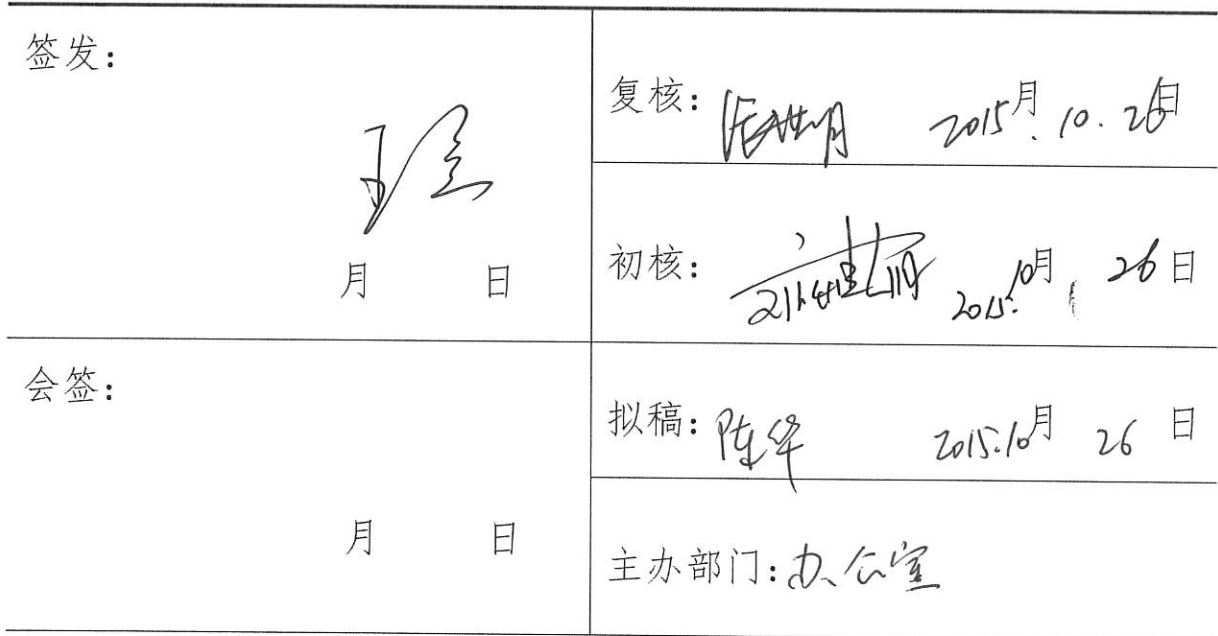 签发：
月 日
复核： 2015月.10.26日
初核： 2015.10月 26日
会签：
月 日
拟稿：陈华 2015.10月 26日
主办部门：办公室